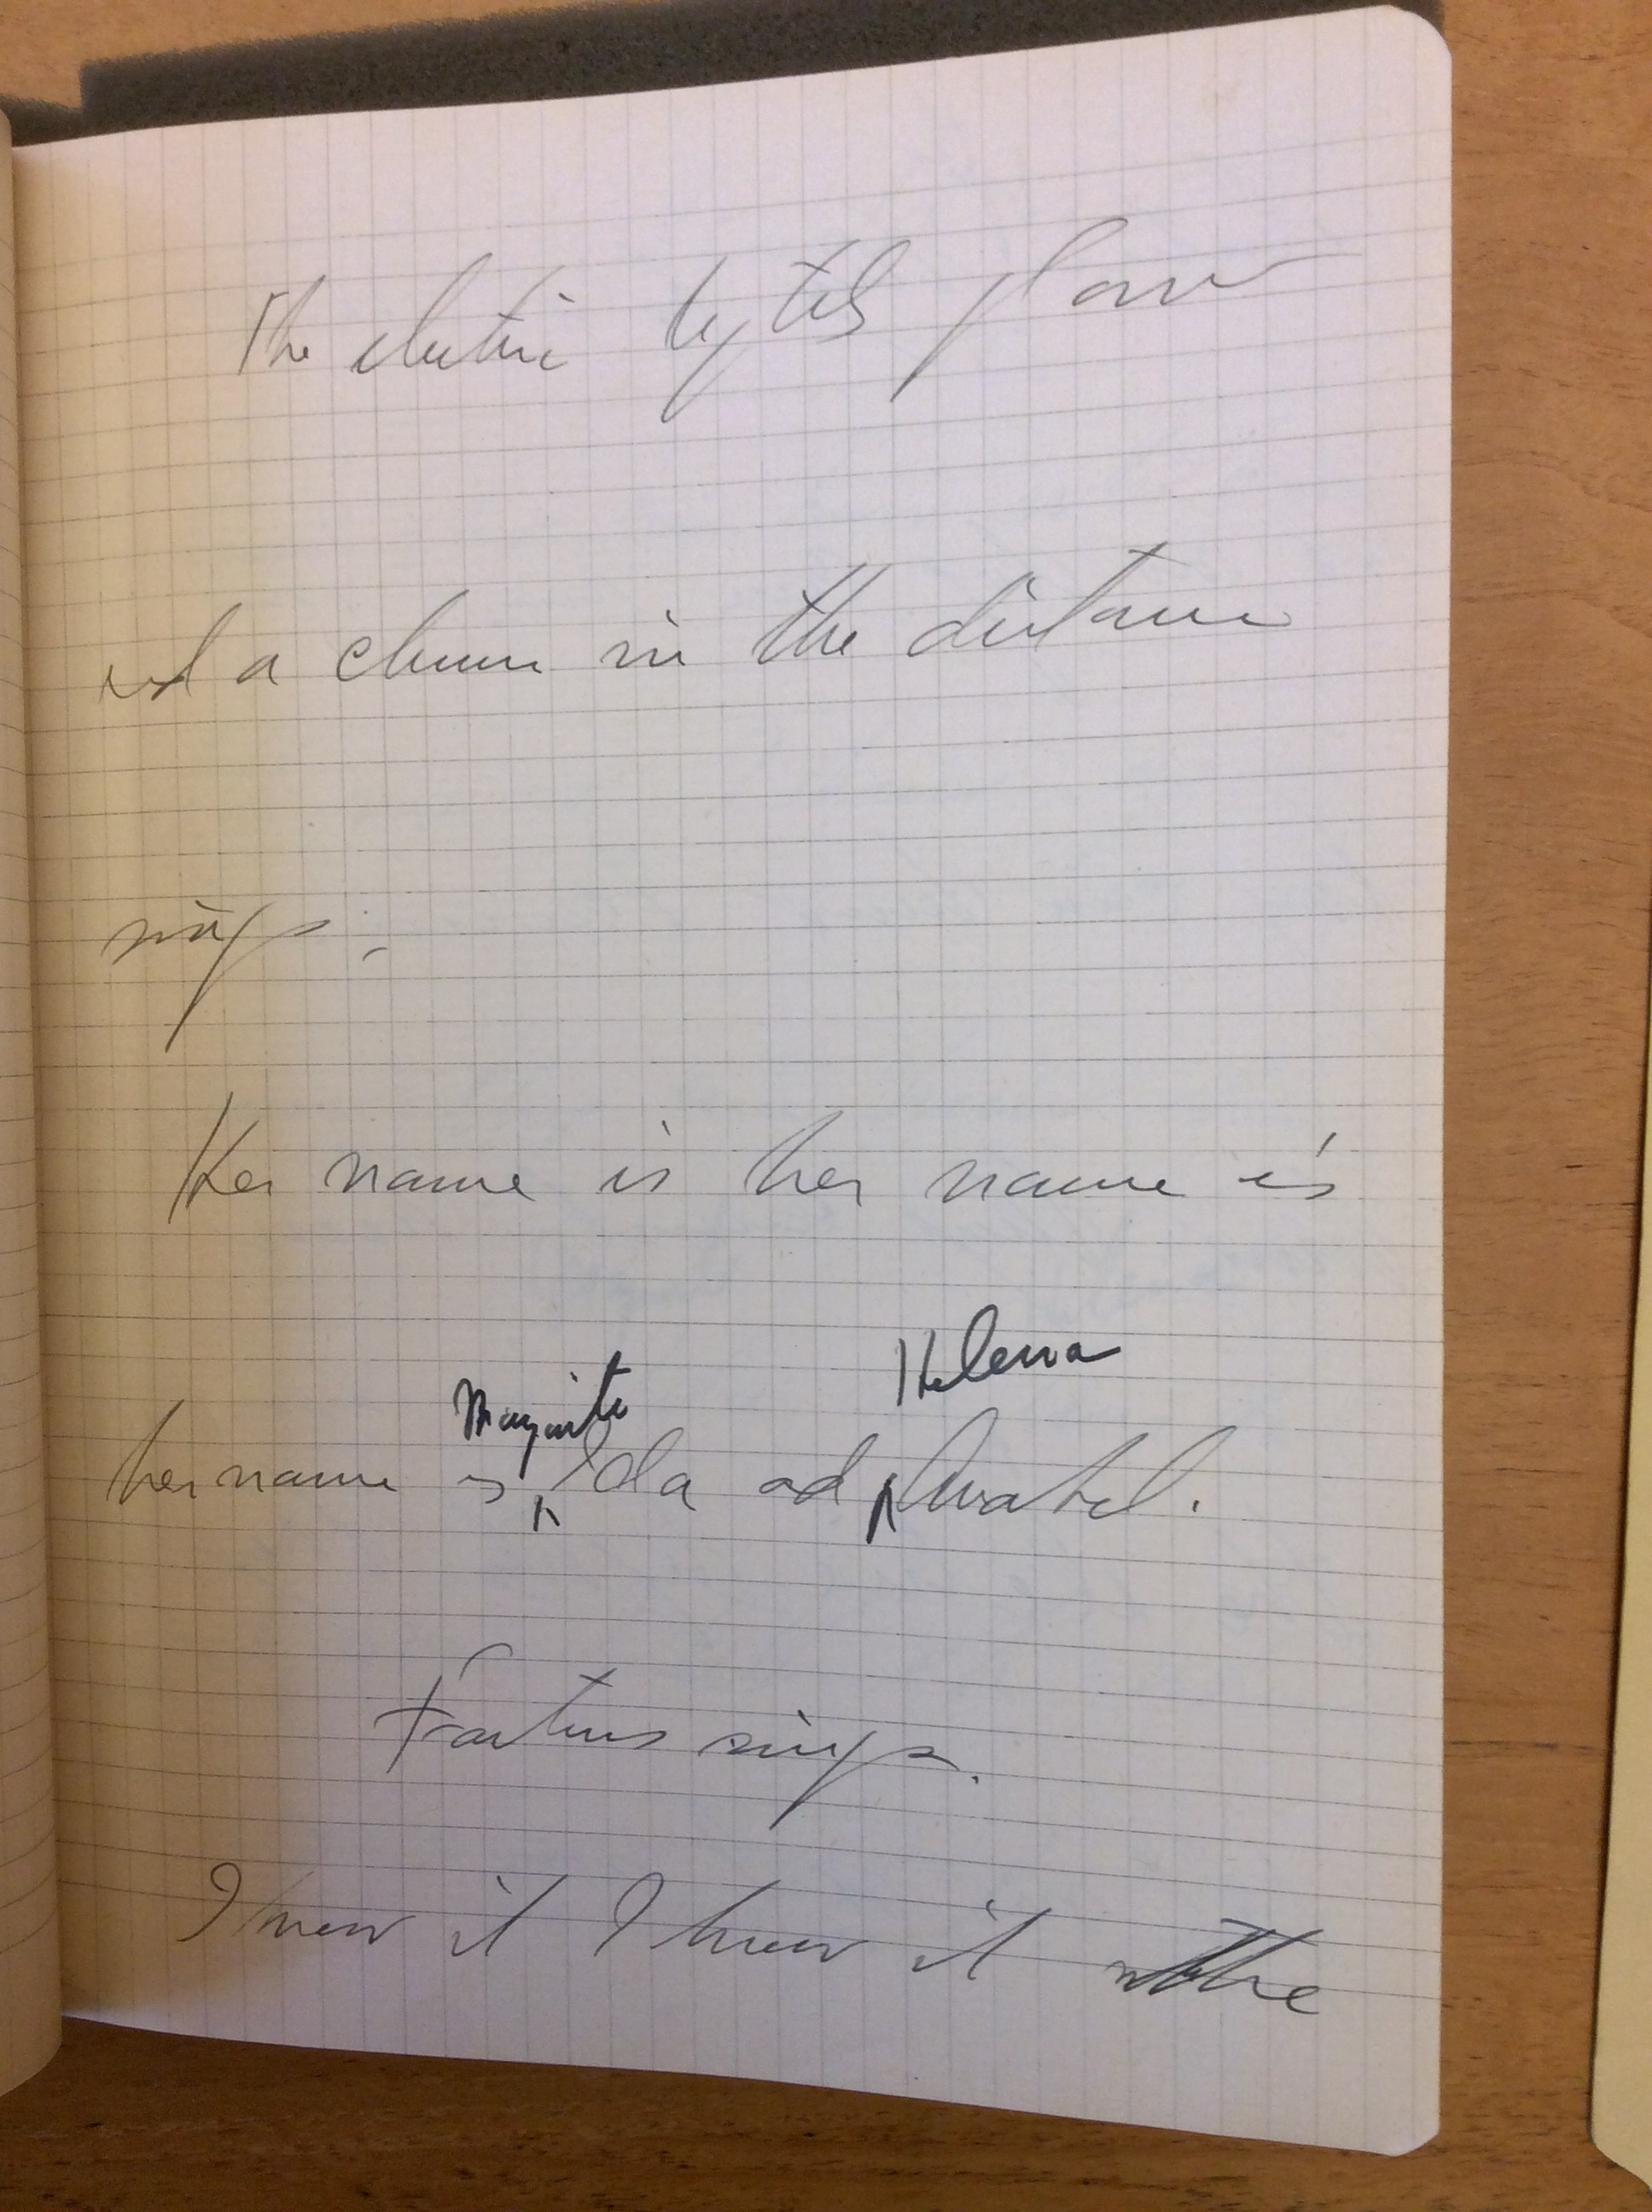 The electric lights glow
and a chorus in the distance
sings;
Her name is her name is
Marguerite Helena
her name is Ida and Annabel.
Faustus sings.
I knew it I knew it the